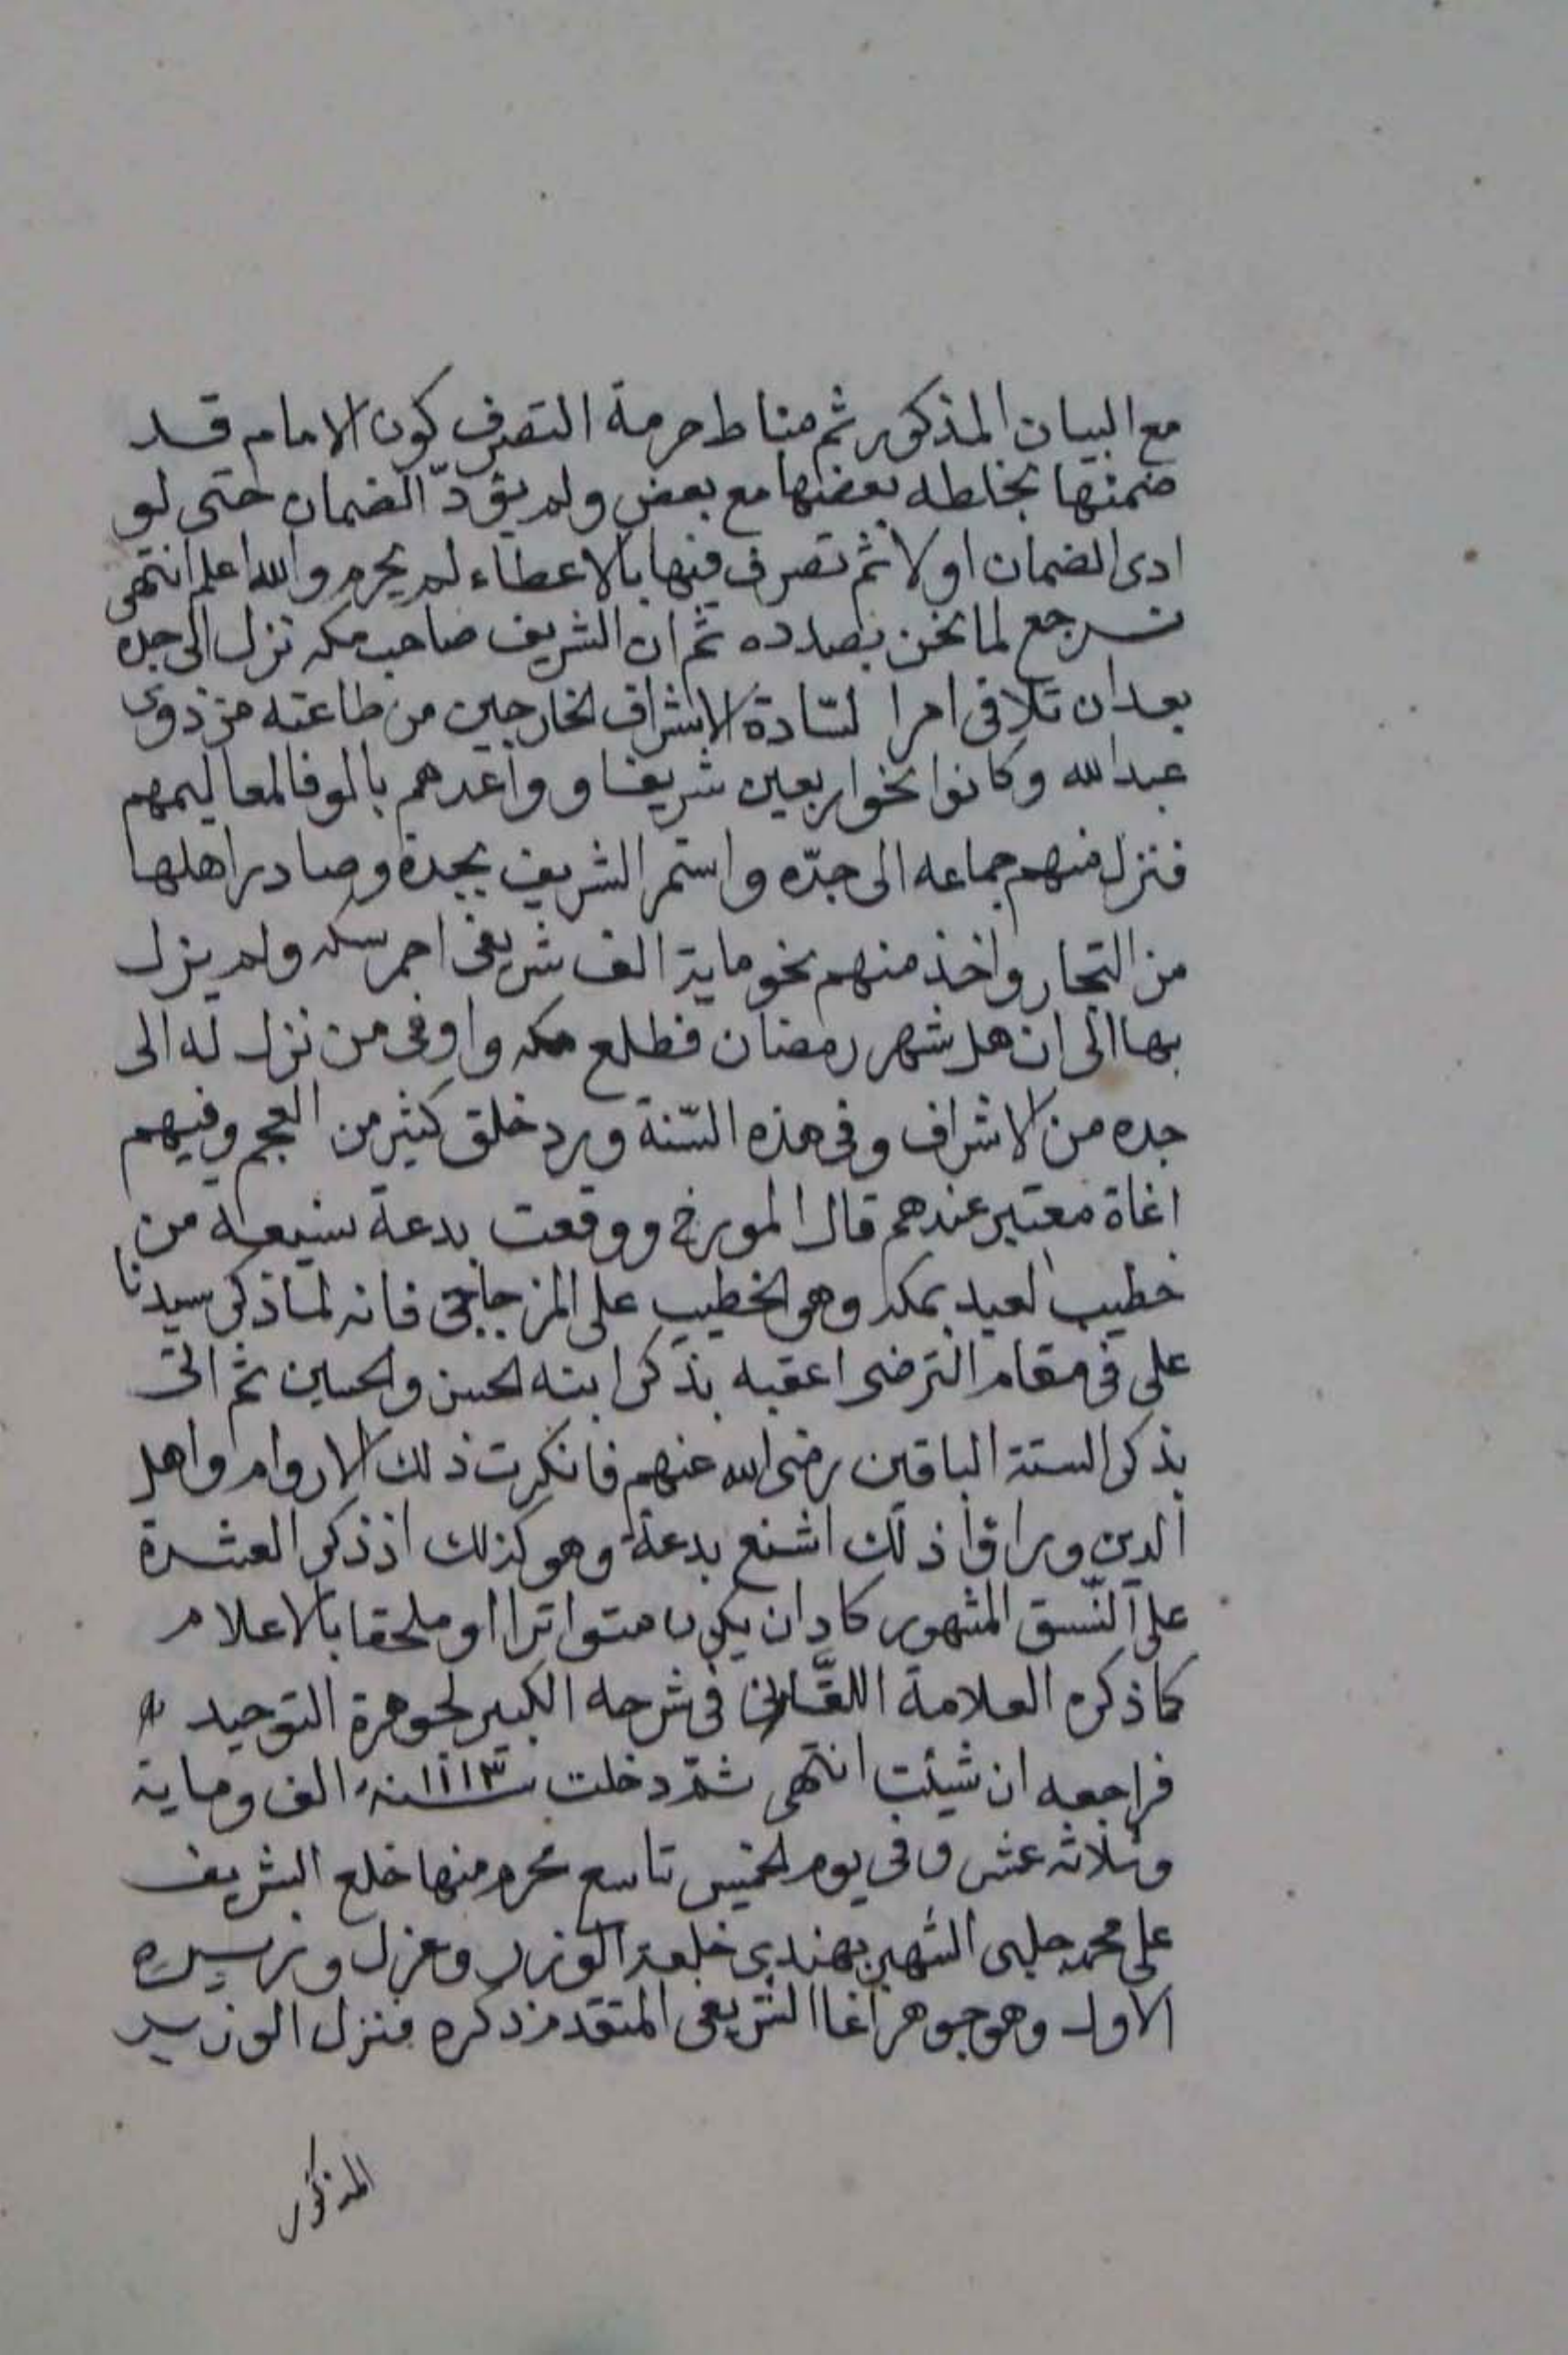 مع البيان المذكور ثم مناط حرمة التصرف كون الامام قد
ضمنها بخلطه بعضها مع بعض ولم يؤدّ الضمان حتى لو
ادى الضمان اولا ثم تصرف فيها بالاعطاء لم يحرم والله اعلم انتهى
نرجع لما نحن بصدده ثم ان الشريف صاحب مكه نزل الى جده
بعد ان تلافى امرا لسّادة الاشراف الخارجين من طاعته من ذوى
عبد الله وكانوا نحوا ربعين شريفا و واعدهم بالوفا لمعاليمهم
فنزل منهم جماعه الى جدّه واستمر الشريف بجدة وصادر اهلها
من التجار واخذ منهم نحو ماية الف شريفى احمر سكه ولم يزل
بها الى ان هل شهر رمضان فطلع مكه واوفى من نزل له الى
جده من الاشراف وفى هذه السّنة ورد خلق كثير من العجم وفيهم
اغاة معتبر عندهم قال المورخ ووقعت بدعة شيعية من
خطيب العيد بمكه وهو الخطيب على المزجاجى فانه لما ذكر سيدنا
على فى مقام الترضى اعقبه بذكر ابنه الحسن والحسين ثم اتى
بذكر الستة الباقين رضى الله عنهم فانكرت ذلك الاروام واهل
الدين وراوا ذلك اشنع بدعة وهو كذلك اذ ذكر العشرة
على النّسق المشهور كاد ان يكون متواترا او ملحقا بالاعلام
كما ذكره العلامة اللقّانى فى شرحه الكبير لجوهرة التوحيد
فراجعه ان شيئت انتهى ثمّ دخلت سنة ١١١٣ الف وماية
وثلاثه عشر وفى يوم الخميس تاسع محرم منها خلع الشريف
على محمد جلبى الشهير بهندى خلعة الوزر وعزل وزيره
الاول وهو جوهر اغا الشريفى المتقدم ذكره فنزل الوزير
المذكور